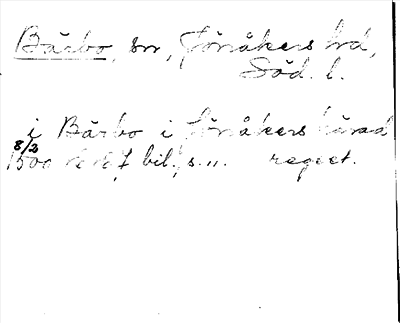 Bärbo, sn, Jönåkers hd,
Söd. l.
i Bärbo i Jönåkers härad
8/3
1500 bil. s. regest.